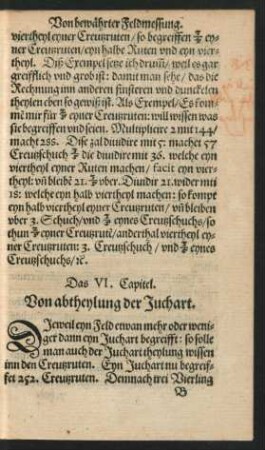 Von bewährter Feldmessung.
viertheyl eyner Creutzruten/ so begreiffen 2/5 ey-
ner Creutzruten/ eyn halbe Ruten vnd eyn vier-
theyl. Diß Exempel setze ich drum̃/ weil es gar
greifflich vnd grob ist: damit man sehe/ das die
Rechnung inn anderen finsteren vnd dunckelen
theylen eben so gewiß ist. Als Exempel/ Es kom-
me mir für 2/5 eyner Creutzruten: will wissen was
sie begreiffen vnd seien. Multipliciere 2 mit 144/
macht 288. Dise zal diuidir mit 5: machet 57
Creutzschuch 3/5 die diuidire mit 36. welche eyn
viertheyl eyner Ruten machen/ facit eyn vier-
theyl: vñ bleibẽ 21. 3/5 vber. Diuidir 21. wider mit
18: welche eyn halb viertheyl machen: so kompt
eyn halb viertheyl eyner Creutzruten/ vñ bleiben
vber 3. Schuch/ vnd 3/5 eynes Creutzschuchs/ so
thun 2/5 eyner Creutzrutẽ/ anderthal viertheyl ey-
ner Creutzruten: 3. Creutzschuch/ vnd 3/5 eynes
Creutzschuchs/ ꝛc.
Das VI. Capitel.
Von abtheylung der Juchart.
DJeweil eyn Feld etwan mehr oder weni-
ger dann eyn Juchart begreifft: so solle
man auch der Juchart theylung wissen
inn den Creutzruten. Eyn Juchart nu begreif-
fet 252. Creutzruten. Demnach trei Vierling
B